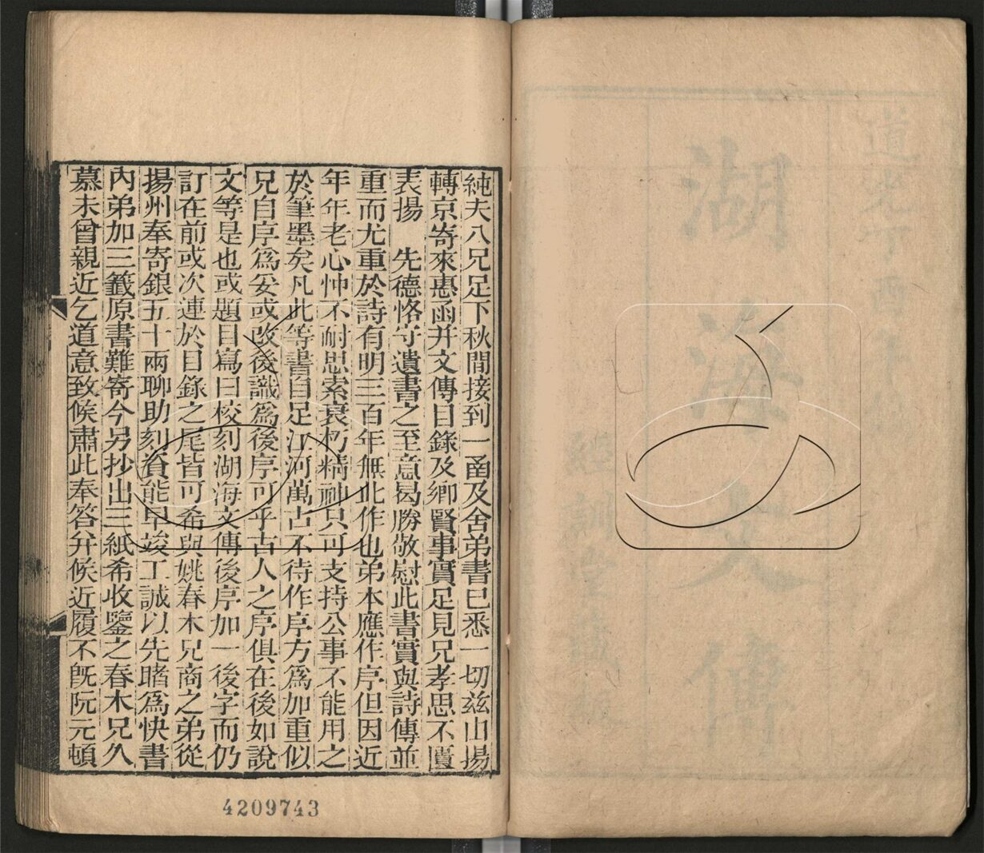 道光丁酉年
湖海文傳
經訓堂藏板
純夫八兄足下秋間接到一函及舍弟書已悉一切茲山揚
轉京寄來惠函并文傳目錄及鄉賢事實足見兄孝思不匱
表揚　先德恪守遺書之至意曷勝敬慰此書實與詩傳並
重而尤重於詩有明三百年無此作也弟本應作序但因近
年年老心忡不耐思索衰朽精神只可支持公事不能用之
於筆墨矣凡此等書自足江河萬古不待作序方為加重似
兄自序為妥或改後識為後序可乎古人之序俱在後如說
文等是也或題目寫曰校刻湖海文傳後序加一後字而仍
訂在前或次連於目錄之尾皆可希與姚春木兄商之弟從
揚州奉寄銀五十兩聊助刻貲能早竣工誠以先睹為快書
內弟加三籤原書難寄今另抄出三紙希收鑒之春木兄久
慕未曾親近乞道意致候肅此奉答并候近履不旣阮元頓
4209743